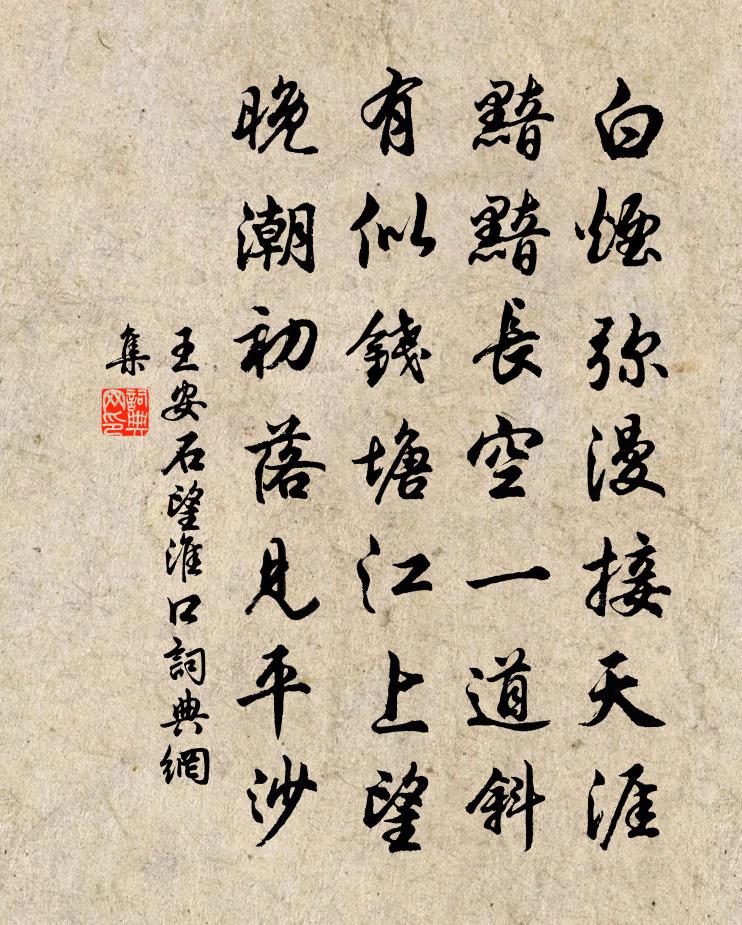 白煙弥漫接天涯
黯黯長空一道斜
有似錢塘江上望
晚潮初落見平沙
王安石望淮口詞典網
集
詞典
网印